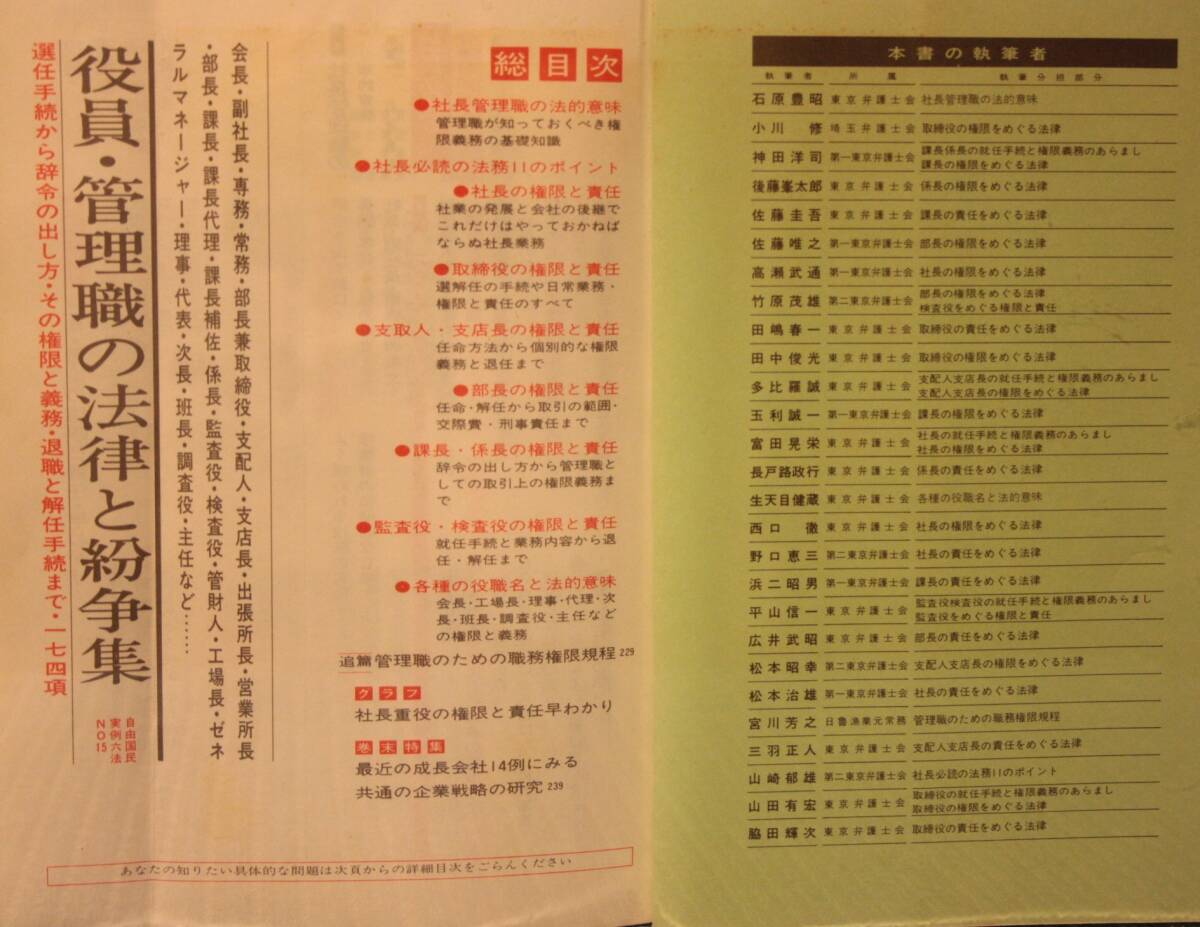 選任手続から辞令の出し方・その権限と義務・退職と解任手続まで・一七四項
役員・管理職の法律と紛争集
自由国民
実例六法
NO15
会長・副社長・専務・常務・部長兼取締役・支配人・支店長・出張所長・営業所長
・部長・課長・課長代理・課長補佐・係長・監査役・検査役・管財人・工場長・ゼネ
ラルマネージャー・理事・代表・次長・班長・調査役・主任など……
総目次
●社長管理職の法的意味
管理職が知っておくべき権
限義務の基礎知識
●社長必読の法務11のポイント
●社長の権限と責任
社業の発展と会社の後継で
これだけはやっておかねば
ならぬ社長業務
●取締役の権限と責任
選解任の手続や日常業務・
権限と責任のすべて
●支取人・支店長の権限と責任
任命方法から個別的な権限
義務と退任まで
●部長の権限と責任
任命・解任から取引の範囲・
交際費・刑事責任まで
●課長・係長の権限と責任
辞令の出し方から管理職と
しての取引上の権限義務ま
で
●監査役・検査役の権限と責任
就任手続と業務内容から退
任・解任まで
●各種の役職名と法的意味
会長・工場長・理事・代理・次
長・班長・調査役・主任など
の権限と義務
追篇管理職のための職務権限規程229
グラフ
社長重役の権限と責任早わかり
巻末特集
最近の成長会社14例にみる
共通の企業戦略の研究239
あなたの知りたい具体的な問題は次頁からの詳細目次をごらんください
本書の執筆者
執筆者 所属 執筆分担部分
石原豊昭 東京弁護士会 社長管理職の法的意味
小川修 埼玉弁護士会 取締役の権限をめぐる法律
神田洋司 第一東京弁護士会 課長係長の就任手続と権限義務のあらまし
課長の権限をめぐる法律
後藤峯太郎 東京弁護士会 係長の権限をめぐる法律
佐藤圭吾 東京弁護士会 課長の責任をめぐる法律
佐藤唯之 第一東京弁護士会 部長の権限をめぐる法律
高瀬武通 第一東京弁護士会 社長の権限をめぐる法律
竹原茂雄 第二東京弁護士会 部長の権限をめぐる法律
検査役をめぐる権限と責任
田嶋春一 東京弁護士会 取締役の責任をめぐる法律
田中俊光 東京弁護士会 取締役の権限をめぐる法律
多比羅誠 東京弁護士会 支配人支店長の就任手続と権限義務のあらまし
支配人支店長の権限をめぐる法律
玉利誠一 第一東京弁護士会 課長の権限をめぐる法律
富田晃栄 東京弁護士会 社長の就任手続と権限義務のあらまし
社長の権限をめぐる法律
長戸路政行 東京弁護士会 係長の責任をめぐる法律
生天目健蔵 東京弁護士会 各種の役職名と法的意味
西口徹 東京弁護士会 社長の権限をめぐる法律
野口恵三 第二東京弁護士会 社長の責任をめぐる法律
浜二昭男 第一東京弁護士会 課長の責任をめぐる法律
平山信一 東京弁護士会 監査役検査役の就任手続と権限義務のあらまし
監査役をめぐる権限と責任
広井武昭 東京弁護士会 部長の責任をめぐる法律
松本昭幸 第二東京弁護士会 支配人支店長の権限をめぐる法律
松本治雄 第一東京弁護士会 社長の責任をめぐる法律
宮川芳之 日魯漁業元常務 管理職のための職務権限規程
三羽正人 東京弁護士会 支配人支店長の責任をめぐる法律
山崎郁雄 第二東京弁護士会 社長必読の法務11のポイント
山田有宏 東京弁護士会 取締役の就任手続と権限義務のあらまし
取締役の権限をめぐる法律
脇田輝次 東京弁護士会 取締役の責任をめぐる法律